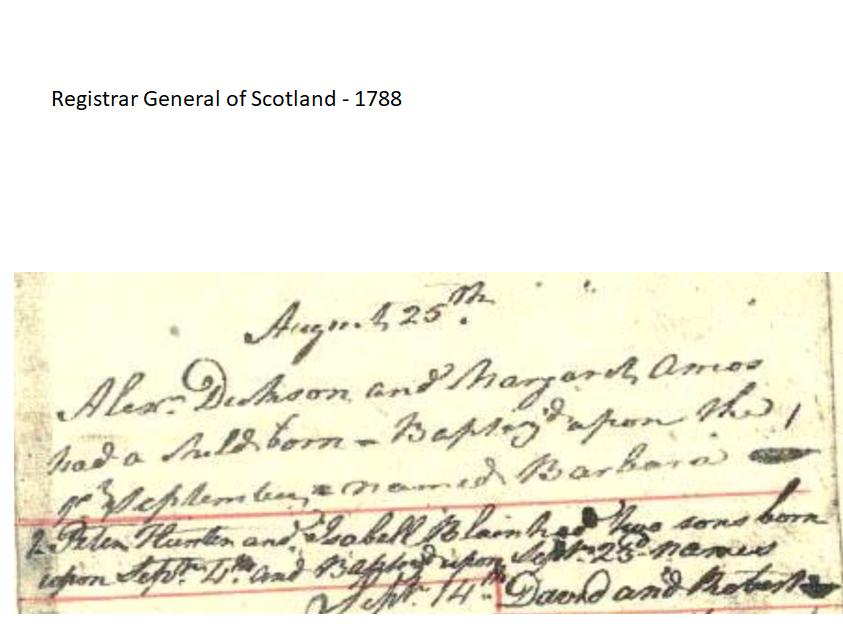 Registrar General of Scotland - 1788
August 25th.
Alexr. Dickson and Margaret Amos
had a child born - Baptiz'd upon the 1
September - named Barbara
2 Peter Hunter and Isabell Blain had two sons born
upon Septr. 4th. and Baptiz'd upon Septr. 23d. names
Septr. 14th David and Robert